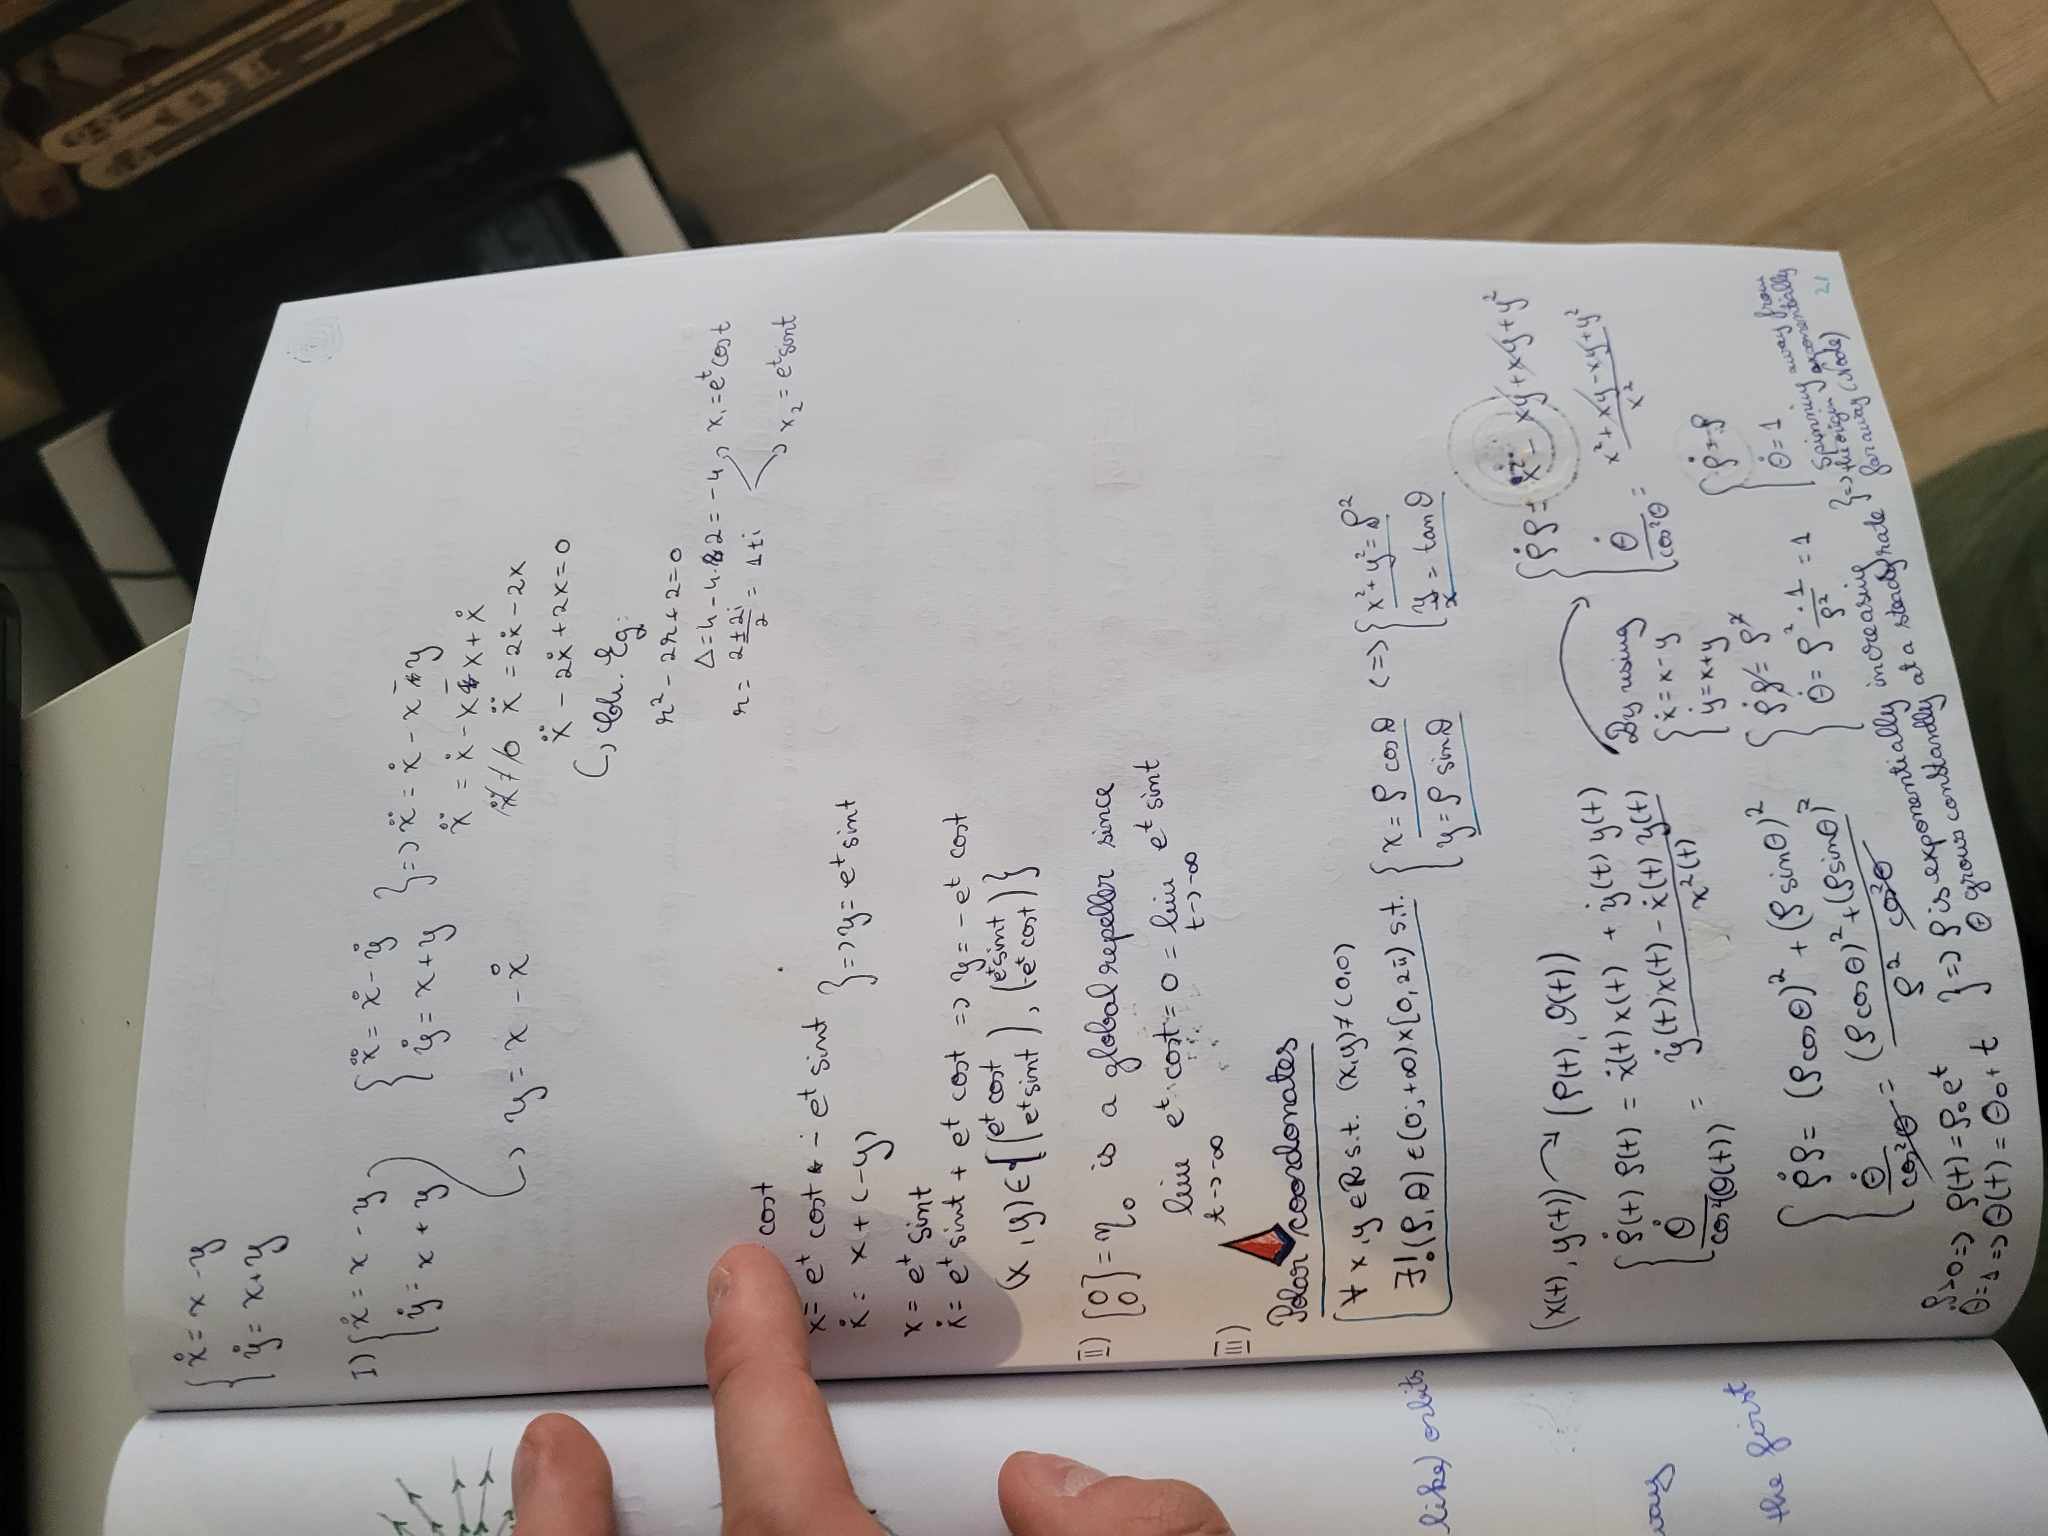 {ẋ = x - y
{ẏ = x+y
I) {ẋ = x - y
{ẏ = x + y
{ẍ = ẋ - ẏ
ẏ = x+y
} => ẍ = ẋ - x - y
ẍ = ẋ - x - x + ẋ
ẍ = 2ẋ - 2x
ẍ - 2ẋ + 2x = 0
y = x - ẋ
Eq:
r² - 2r + 2 = 0
Δ = 4 - 4·2 = -4
r = 2±2i/2 = 1±i
x₁ = eᵗ cost
x₂ = eᵗ sint
cost
ẋ = eᵗ cost - eᵗ sint
ẋ = x + (-y)
} => y = eᵗ sint
x = eᵗ sint
ẋ = eᵗ sint + eᵗ cost => y = - eᵗ cost
(x, y) ∈ { (eᵗ cost / eᵗ sint), (eᵗ sint / -eᵗ cost) }
II) [0 0] = η₀ is a global repeller since
lim t->-∞ eᵗ cost = 0 = lim t->-∞ eᵗ sint
III)
Polar coordonates
∀ x, y ∈ R s.t. (x,y) ≠ (0,0)
∃! (ρ, θ) ∈ (0; +∞) x [0, 2π) s.t. {x = ρ cosθ
{y = ρ sinθ
<=> {x² + y² = ρ²
{y/x = tanθ
(x(t), y(t)) -> (ρ(t), θ(t))
{ρ̇(t) ρ(t) = ẋ(t) x(t) + ẏ(t) y(t)
θ̇/cos²(θ(t)) = ẏ(t) x(t) - ẋ(t) y(t) / x²(t)
By using
{ẋ = x - y
{ẏ = x+y
{ρ̇ρ = x² - xy + xy + y²
θ̇/cos²θ = x² + xy - xy + y² / x²
{ρ̇ρ = (ρ cosθ)² + (ρ sinθ)²
θ̇/cos²θ = (ρ cosθ)² + (ρ sinθ)² / ρ² cos²θ
{ρ̇ρ = ρ²
θ̇ = ρ² · 1/ρ² = 1
{ρ̇ = ρ
θ̇ = 1
ρ̇ > 0 => ρ(t) = ρ₀eᵗ
θ̇ = 1 => θ(t) = θ₀ + t
} => ρ is exponentially increasing
θ grows constantly at a steady rate
} => spinning away from
the origin exponentially
faraway (Node)
21
like) orbits
way
the first